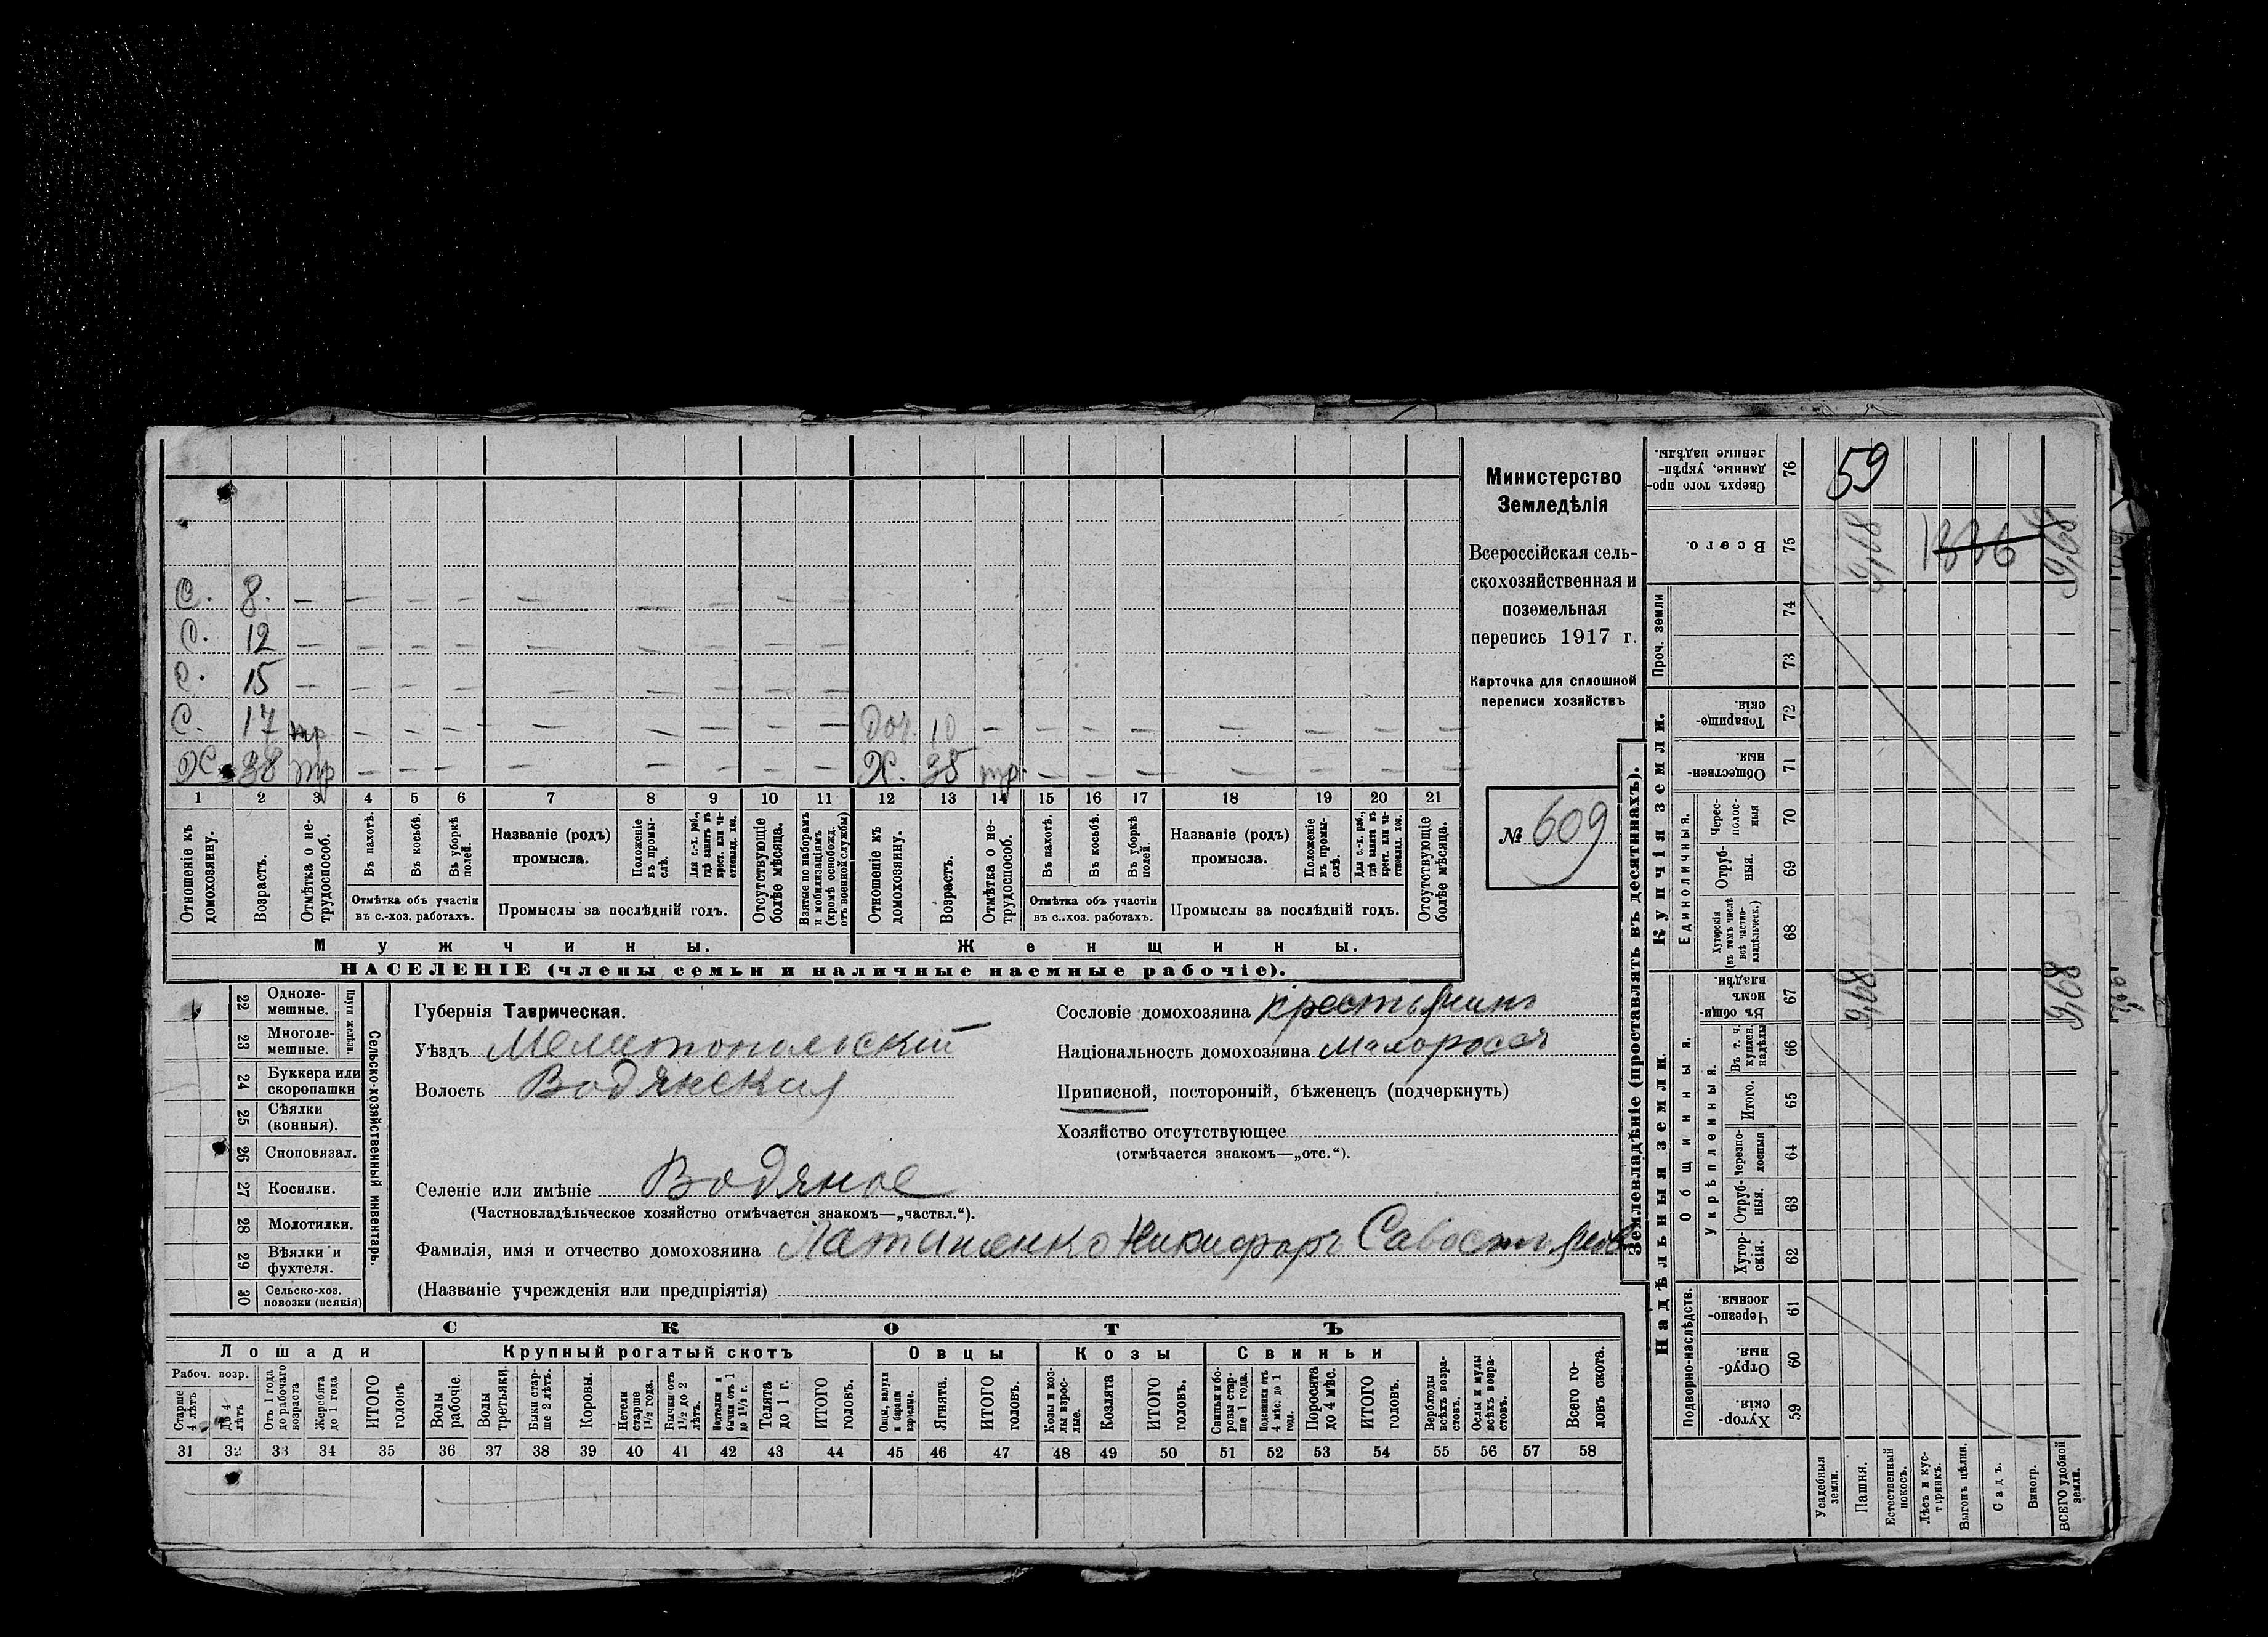 С. 8. — — — — — — — — —
С. 12 — — — — — — — — —
С. 15 — — — — — — — — —
С. 17 тр — — — — — — — — Доч. 10 — — — — — — — —
Х. 38 тр — — — — — — — — Ж. 35 тр. — — — — — — —
1 2 3 4 5 6 7 8 9 10 11 12 13 14 15 16 17 18 19 20 21
Отношеніе къ домохозяину.
Возрастъ.
Отмѣтка о не-трудоспособ.
Въ пахотѣ.
Въ косьбѣ.
Въ уборкѣ полей.
Отмѣтка объ участіи
въ с.-хоз. работахъ.
Названіе (родъ)
промысла.
Положеніе въ промы-слѣ.
Для с.-х. раб., гдѣ занятъ въ крест. или ча-стновлад. хоз.
Промыслы за послѣдній годъ.
Отсутствующіе болѣе мѣсяца.
Взятые по наборамъ и мобилизаціямъ (кромѣ освобожд. отъ военной службы)
Отношеніе къ домохозяину.
Возрастъ.
Отмѣтка о не-трудоспособ.
Въ пахотѣ.
Въ косьбѣ.
Въ уборкѣ полей.
Отмѣтка объ участіи
въ с.-хоз. работахъ.
Названіе (родъ)
промысла.
Положеніе въ промы-слѣ.
Для с.-х. раб., гдѣ занята въ крест. или ча-стновлад. хоз.
Промыслы за послѣдній годъ.
Отсутствующіе болѣе мѣсяца.
Мужчины. Женщины.
НАСЕЛЕНІЕ (члены семьи и наличные наемные рабочіе).
Министерство
Земледѣлія
Всероссійская сель-
скохозяйственная и
поземельная
перепись 1917 г.
Карточка для сплошной
переписи хозяйствъ
№ 609
22 Одноле-мешные.
23 Многоле-мешные.
Плуги желѣзн.
24 Буккера или скоропашки
25 Сѣялки (конныя).
26 Сноповязал.
27 Косилки.
28 Молотилки.
29 Вѣялки и фухтеля.
30 Сельско-хоз. повозки (всякія)
Сельско-хозяйственный инвентарь.
Губернія Таврическая.
Уѣздъ Мелитопольскій
Волость Водянская
Селеніе или имѣніе Водяное
(Частновладѣльческое хозяйство отмѣчается знакомъ—„частвл.“).
Фамилія, имя и отчество домохозяина Никифоръ
(Названіе учрежденія или предпріятія)
Сословіе домохозяина крестьянинъ
Національность домохозяина Малороссъ
Приписной, посторонній, бѣженецъ (подчеркнуть)
Хозяйство отсутствующее
(отмѣчается знакомъ—„отс.“).
СКОТЪ
Лошади Крупный рогатый скотъ Овцы Козы Свиньи
Рабоч. возр.
Старше 4 лѣтъ
До 4 лѣтъ
Отъ 1 года до рабочаго возраста
Жеребята до 1 года
ИТОГО головъ
Волы рабочіе.
Волы третьяки.
Быки стар-ше 2 лѣтъ.
Коровы.
Нетели старше 1½ года.
Бычки отъ 1½ до 2 лѣтъ.
Телята до 1 г.
ИТОГО головъ.
Ягнята.
ИТОГО головъ.
Козы и коз-лы взрос-лые.
Козлята
ИТОГО головъ.
Свиньи и бо-ровы стар-ше 1 года.
Подсвинки отъ 4 мѣс. до 1 года.
Поросята до 4 мѣс.
ИТОГО головъ.
Верблюды всѣхъ возра-стовъ.
Ослы и мулы всѣхъ возра-стовъ.
Всего го-ловъ скота.
31 32 33 34 35 36 37 38 39 40 41 42 43 44 45 46 47 48 49 50 51 52 53 54 55 56 57 58
Землевладѣніе (проставлять въ десятинахъ).
Надѣльныя земли. Купчія земли. Проч. земли
Подворно-наслѣдств.
Общинныя.
Укрѣпленныя.
Единоличныя.
Сверхъ того про-данные, укрѣп-ленные надѣлы. 76 59
Всего. 75 9,68 1836 9,68
74
73
Товарище-скія. 72
Обществен-ныя. 71
Черес-полос-ныя 70
Отруб-ныя. 69
Хуторскія (въ томъ числѣ всѣ частно-владѣльческ.) 68
Въ общи-номъ владѣн. 67 9,68 9,68
Въ т. ч. куплен. надѣлы 66
Итого. 65
Черезпо-лосныя 64
Отруб-ныя. 63
Хутор-скія. 62
Черезпо-лосныя 61
Отруб-ныя. 60
Хутор-скія. 59
Усадебныя земли.
Пашня.
Естественный покосъ.
Лѣсъ и кус-тарникъ.
Выгонъ цѣлин.
Садъ.
Виногр.
ВСЕГО удобной земли.